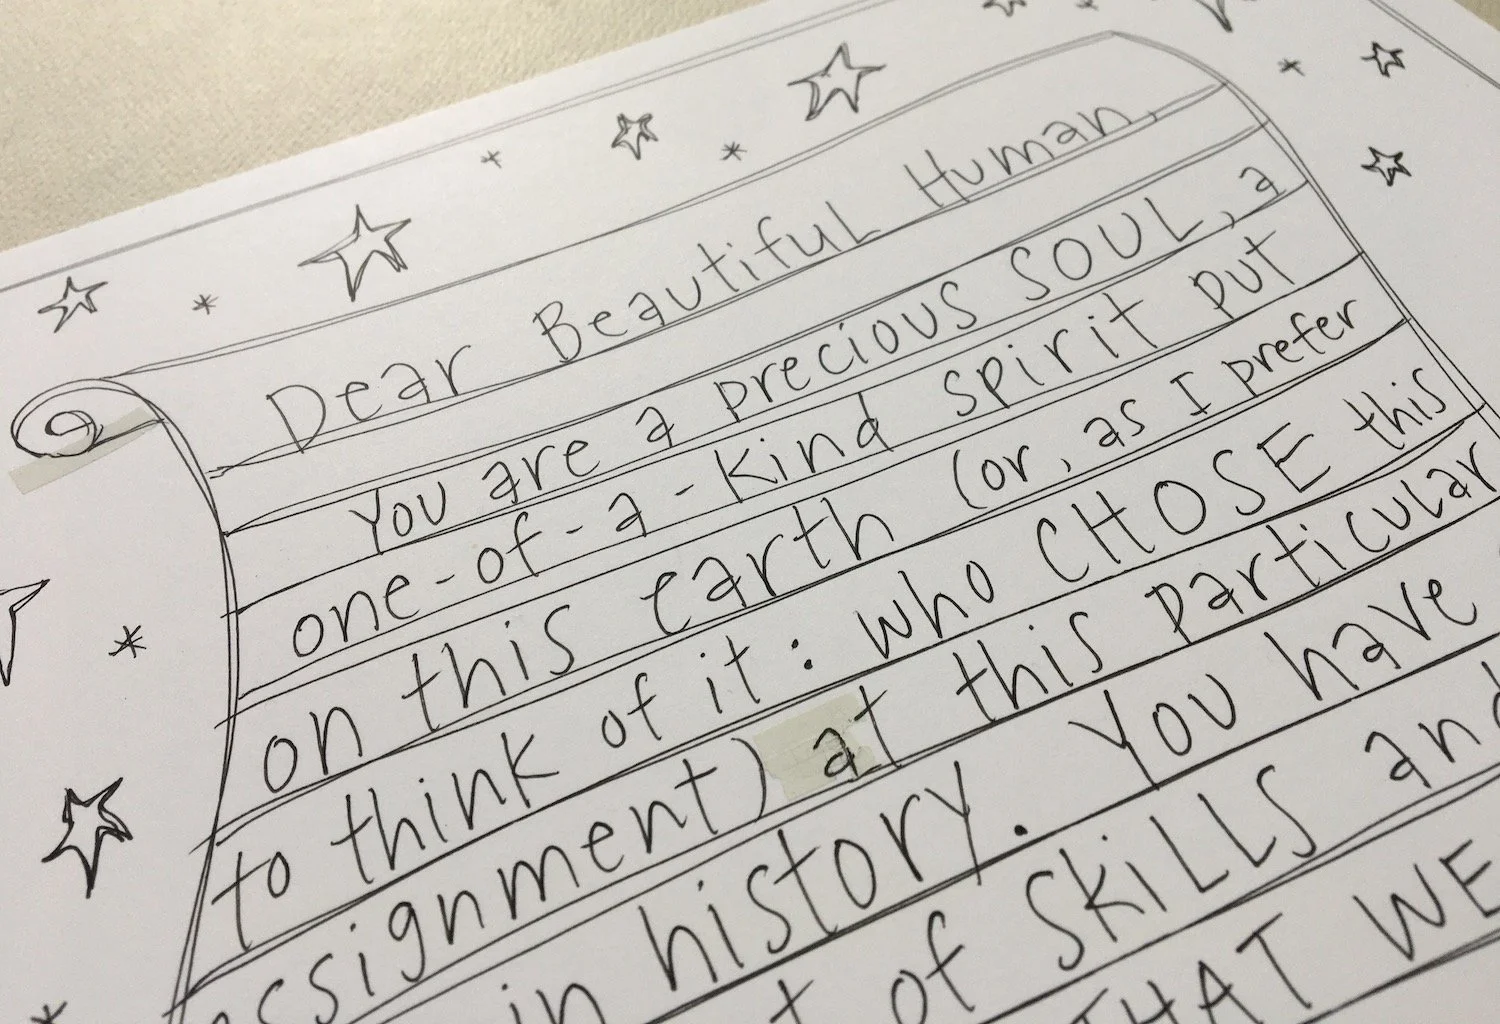 Dear Beautiful Human,
You are a precious SOUL, a
one-of-a-kind spirit put
on this earth (or, as I prefer
to think of it: who CHOSE this
assignment) at this particular
in history. You have
of skills and
THAT WE